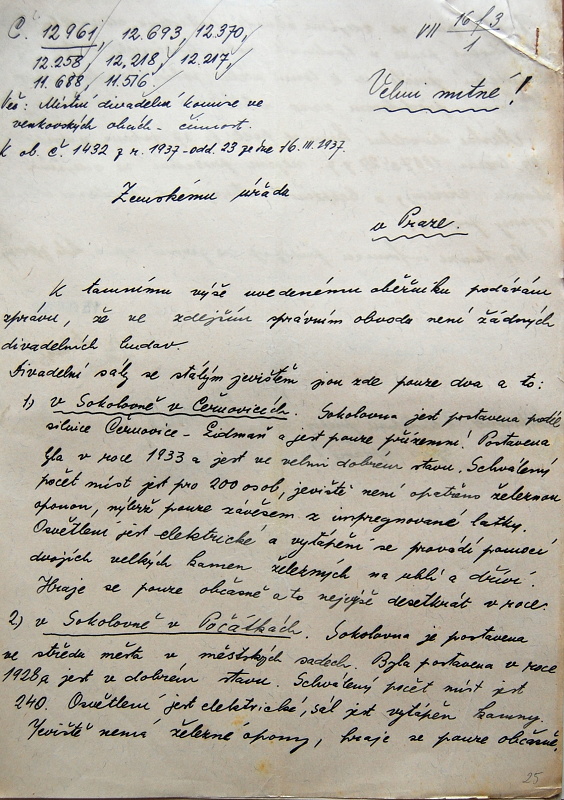 Č. 12.961, 12.693, 12.370,
12.258, 12.218, 12.217,
11.688, 11.516
VII 16/3
1
Velmi nutné!
Věc: Místní divadelní komise ve
venkovských obcích - činnost.
K ob. č. 1432 z r. 1937 - odd. 23 ze dne 16. III. 1937.
Zemskému úřadu
v Praze.
K tamnímu výše uvedenému oběžníku podávám
zprávu, že ve zdejším správním obvodu není žádných
divadelních budov.
Divadelní sály se stálým jevištěm jsou zde pouze dva a to:
1) v Sokolovně v Černovicích. Sokolovna jest postavena podél
silnice Černovice - Lidmaň a jest pouze přízemní. Postavena
byla v roce 1933 a jest ve velmi dobrém stavu. Schválený
počet míst jest pro 200 osob, jeviště není opatřeno železnou
oponou, nýbrž pouze závěsem z impregnované látky.
Osvětlení jest elektrické a vytápění se provádí pomocí
dvojích velkých kamen železných na uhlí a dříví.
Hraje se pouze občasně a to nejvýše desetkrát v roce.
2) v Sokolovně v Počátkách. Sokolovna je postavena
ve středu města v městských sadech. Byla postavena v roce
1928 a jest v dobrém stavu. Schválený počet míst jest
240. Osvětlení jest elektrické, sál jest vytápěn kamny.
Jeviště nemá železné opony, hraje se pouze občasně,
25